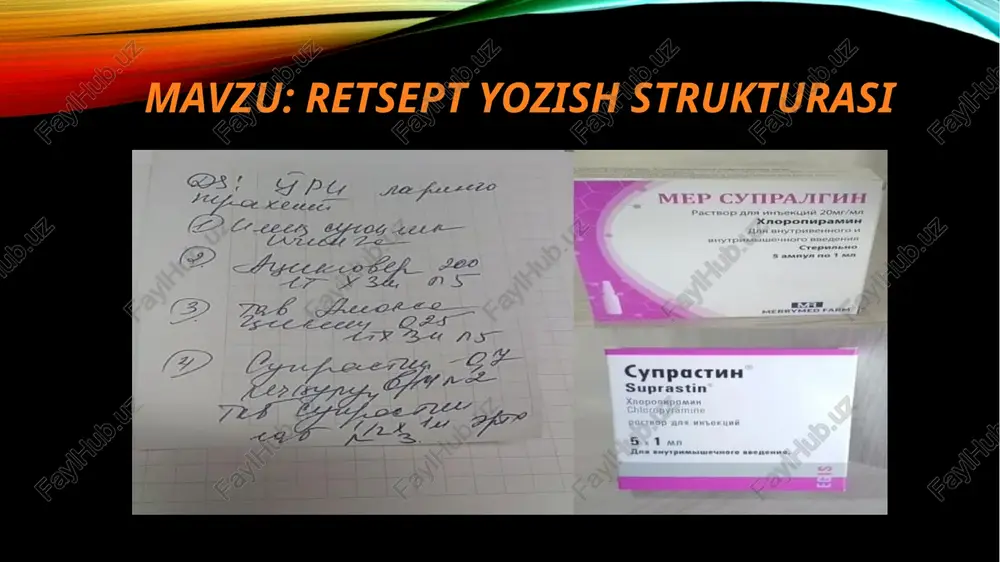 MAVZU: RETSEPT YOZISH STRUKTURASI
DS: ЎРИ ларинго
трахеит
①
②
Ацикловер 200
1т х 3м n5
③ таб Амокси
0,25
1тх 3м n5
④ Супрастин - 0,7
в/м n2
Таб Супрастин
таб 1/2 х 1м
n 3.
МЕР СУПРАЛГИН
Раствор для инъекций 20мг/мл
Хлоропирамин
Для внутривенного и
внутримышечного введения
Стерильно
5 ампул по 1 мл
MERRYMED FARM
Супрастин®
Suprastin®
Хлоропирамин
Chloropyramine
раствор для инъекций
5 x 1 мл
Для внутримышечного введения.
EGIS
FaylHub.uz